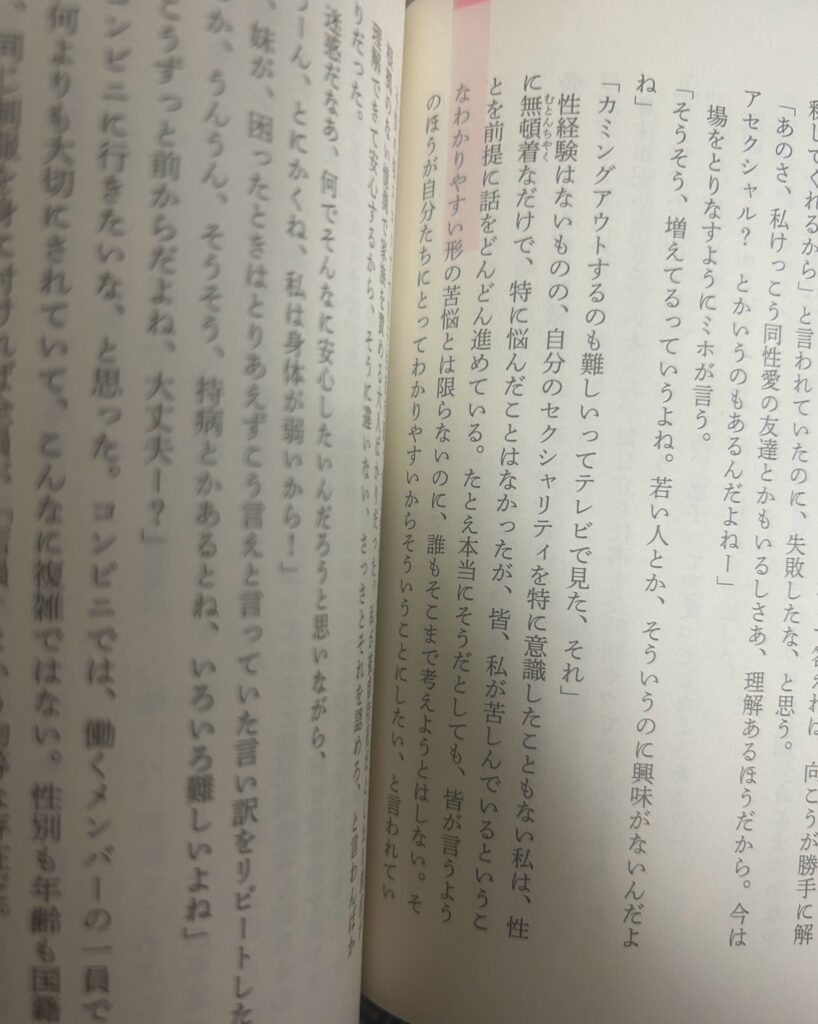 釈してくれるから」と言われていたのに、失敗したな、と思う。
「あのさ、私けっこう同性愛の友達とかもいるしさあ、理解あるほうだから。今は
アセクシャル？　とかいうのもあるんだよねー」
場をとりなすようにミホが言う。
「そうそう、増えてるっていうよね。若い人とか、そういうのに興味がないんだよ
ね」
「カミングアウトするのも難しいってテレビで見た、それ」
性経験はないものの、自分のセクシャリティを特に意識したこともない私は、性
に無頓着なだけで、特に悩んだことはなかったが、皆、私が苦しんでいるというこ
むとんちゃく
とを前提に話をどんどん進めている。たとえ本当にそうだとしても、皆が言うよう
なわかりやすい形の苦悩とは限らないのに、誰もそこまで考えようとはしない。そ
のほうが自分たちにとってわかりやすいからそういうことにしたい、と言われてい
理解できて安心するから、そうに違いない、さっさとそれを認めろ、と言わんばか
りだった。
迷惑だなあ、何でそんなに安心したいんだろうと思いながら、
うーん、とにかくね、私は身体が弱いから！」
、妹が、困ったときはとりあえずこう言えと言っていた言い訳をリピートした
か、うんうん、そうそう、持病とかあるとね、いろいろ難しいよね」
とうずっと前からだよね、大丈夫ー？」
コンビニに行きたいな、と思った。コンビニでは、働くメンバーの一員で
何よりも大切にされていて、こんなに複雑ではない。性別も年齢も国籍
、同じ制服を身に付ければ全員が